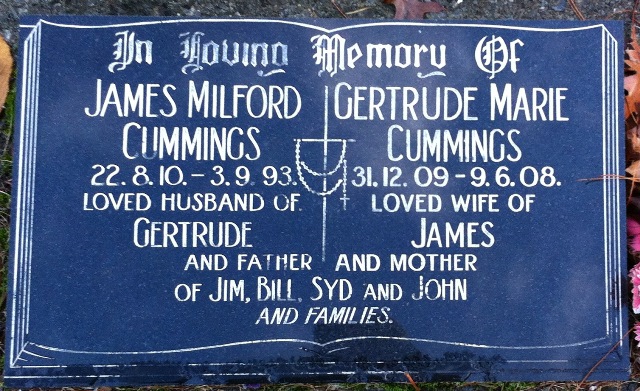 In Loving Memory Of
JAMES MILFORD
CUMMINGS
22.8.10. – 3.9.93.
LOVED HUSBAND OF
GERTRUDE
AND FATHER
GERTRUDE MARIE
CUMMINGS
31.12.09 – 9.6.08.
LOVED WIFE OF
JAMES
AND MOTHER
OF JIM, BILL, SYD AND JOHN
AND FAMILIES.